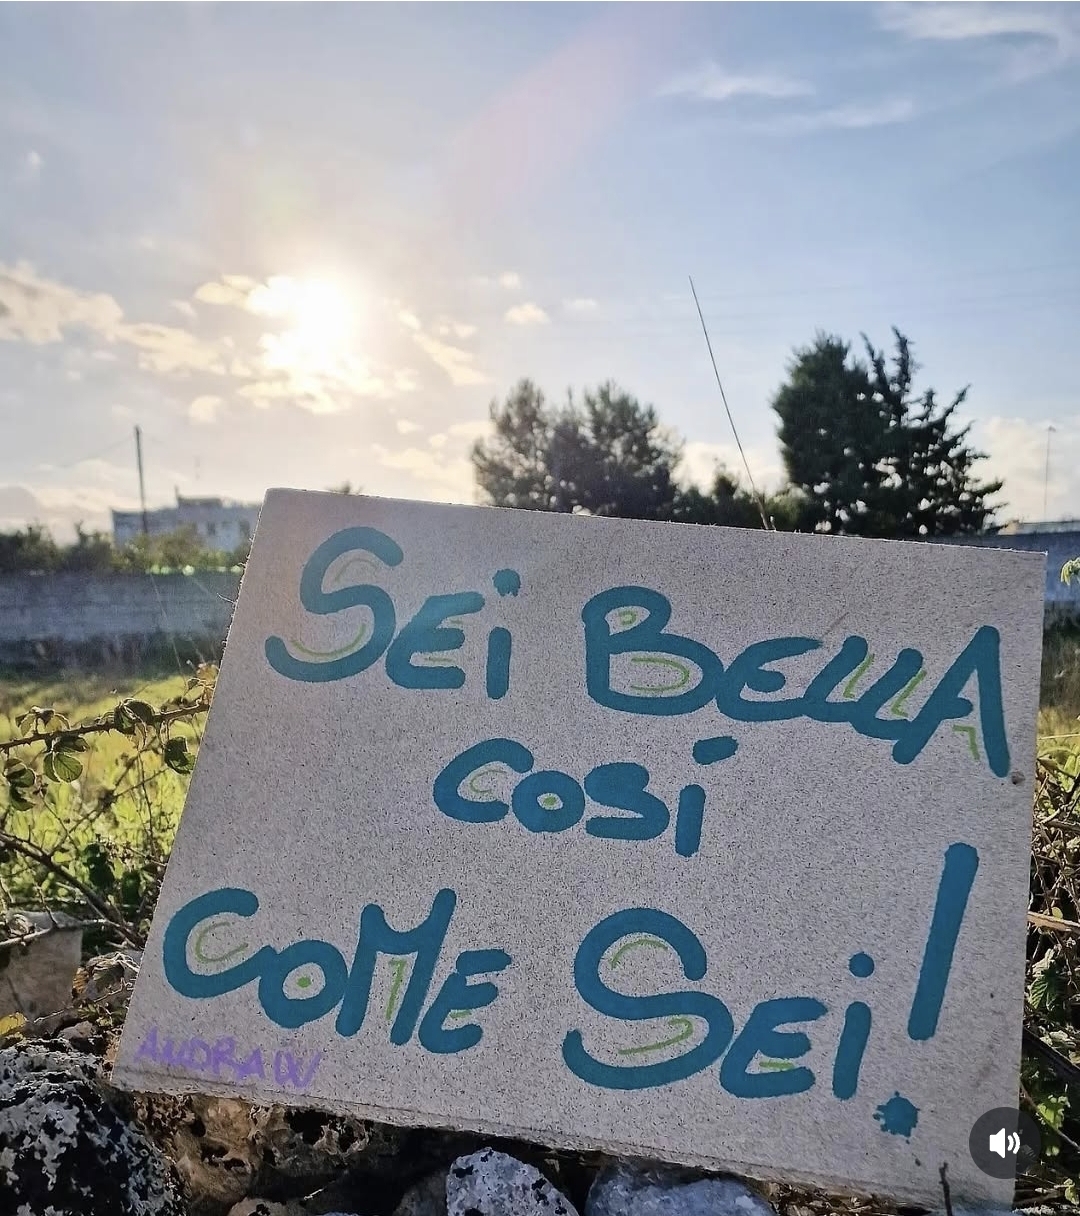 SEi BELLA
COSÍ
COME SEi!
ANDRAW